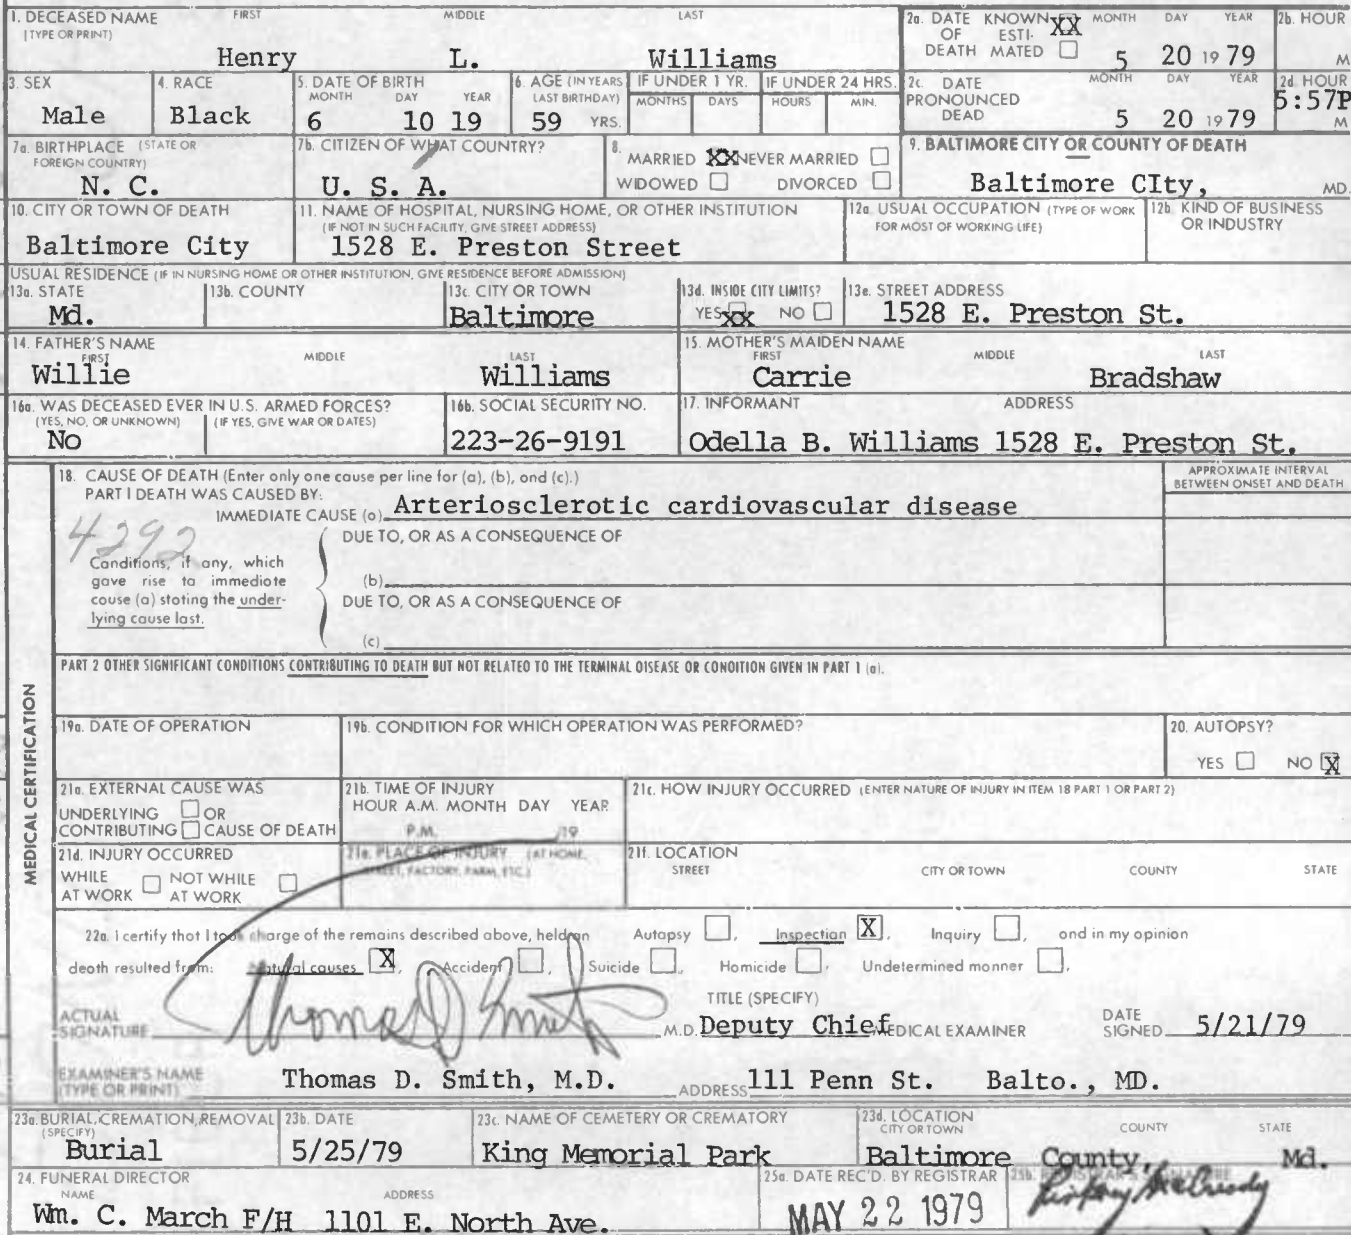 1. DECEASED NAME (TYPE OR PRINT) FIRST MIDDLE LAST
Henry L. Williams
2a. DATE OF DEATH KNOWN XX ESTIMATED MONTH DAY YEAR
5 20 1979
2b. HOUR M
3. SEX
Male
4. RACE
Black
5. DATE OF BIRTH MONTH DAY YEAR
6 10 19
6. AGE (IN YEARS LAST BIRTHDAY)
59 YRS.
IF UNDER 1 YR. MONTHS DAYS
IF UNDER 24 HRS. HOURS MIN.
2c. DATE PRONOUNCED DEAD MONTH DAY YEAR
5 20 1979
2d. HOUR
5:57P M
7a. BIRTHPLACE (STATE OR FOREIGN COUNTRY)
N. C.
7b. CITIZEN OF WHAT COUNTRY?
U. S. A.
8. MARRIED XX NEVER MARRIED
WIDOWED DIVORCED
9. BALTIMORE CITY OR COUNTY OF DEATH
Baltimore CIty, MD.
10. CITY OR TOWN OF DEATH
Baltimore City
11. NAME OF HOSPITAL, NURSING HOME, OR OTHER INSTITUTION
(IF NOT IN SUCH FACILITY, GIVE STREET ADDRESS)
1528 E. Preston Street
12a. USUAL OCCUPATION (TYPE OF WORK FOR MOST OF WORKING LIFE)
12b. KIND OF BUSINESS OR INDUSTRY
USUAL RESIDENCE (IF IN NURSING HOME OR OTHER INSTITUTION, GIVE RESIDENCE BEFORE ADMISSION)
13a. STATE
Md.
13b. COUNTY
13c. CITY OR TOWN
Baltimore
13d. INSIDE CITY LIMITS?
YES XX NO
13e. STREET ADDRESS
1528 E. Preston St.
14. FATHER'S NAME FIRST MIDDLE LAST
Willie Williams
15. MOTHER'S MAIDEN NAME FIRST MIDDLE LAST
Carrie Bradshaw
16a. WAS DECEASED EVER IN U.S. ARMED FORCES?
(YES, NO, OR UNKNOWN) (IF YES, GIVE WAR OR DATES)
No
16b. SOCIAL SECURITY NO.
223-26-9191
17. INFORMANT ADDRESS
Odella B. Williams 1528 E. Preston St.
18. CAUSE OF DEATH (Enter only one cause per line for (a), (b), and (c).)
APPROXIMATE INTERVAL BETWEEN ONSET AND DEATH
PART I DEATH WAS CAUSED BY:
IMMEDIATE CAUSE (a) Arteriosclerotic cardiovascular disease
4292
DUE TO, OR AS A CONSEQUENCE OF
Conditions, if any, which
gave rise to immediate
cause (a) stating the under-
lying cause last.
(b)
DUE TO, OR AS A CONSEQUENCE OF
(c)
PART 2 OTHER SIGNIFICANT CONDITIONS CONTRIBUTING TO DEATH BUT NOT RELATED TO THE TERMINAL DISEASE OR CONDITION GIVEN IN PART 1 (a).
MEDICAL CERTIFICATION
19a. DATE OF OPERATION
19b. CONDITION FOR WHICH OPERATION WAS PERFORMED?
20. AUTOPSY?
YES NO X
21a. EXTERNAL CAUSE WAS
UNDERLYING OR
CONTRIBUTING CAUSE OF DEATH
21b. TIME OF INJURY
HOUR A.M. MONTH DAY YEAR
P.M. 19
21c. HOW INJURY OCCURRED (ENTER NATURE OF INJURY IN ITEM 18 PART 1 OR PART 2)
21d. INJURY OCCURRED
WHILE AT WORK NOT WHILE AT WORK
21e. PLACE OF INJURY (AT HOME, STREET, FACTORY, FARM, ETC.)
21f. LOCATION
STREET CITY OR TOWN COUNTY STATE
22a. I certify that I took charge of the remains described above, held an Autopsy, Inspection X, Inquiry, and in my opinion
death resulted from: Natural causes X, Accident, Suicide, Homicide, Undetermined manner.
ACTUAL SIGNATURE Thomas D Smith M.D.
TITLE (SPECIFY)
Deputy Chief MEDICAL EXAMINER
DATE SIGNED 5/21/79
EXAMINER'S NAME (TYPE OR PRINT) Thomas D. Smith, M.D.
ADDRESS 111 Penn St. Balto., MD.
23a. BURIAL, CREMATION, REMOVAL (SPECIFY)
Burial
23b. DATE
5/25/79
23c. NAME OF CEMETERY OR CREMATORY
King Memorial Park
23d. LOCATION CITY OR TOWN COUNTY STATE
Baltimore County, Md.
24. FUNERAL DIRECTOR
NAME ADDRESS
Wm. C. March F/H 1101 E. North Ave.
25a. DATE REC'D. BY REGISTRAR
MAY 22 1979
25b. REGISTRAR'S SIGNATURE